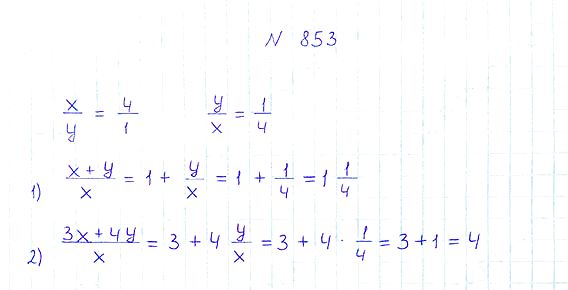 N 853
x/y = 4/1 y/x = 1/4
1) (x + y)/x = 1 + y/x = 1 + 1/4 = 1 1/4
2) (3x + 4y)/x = 3 + 4 y/x = 3 + 4 · 1/4 = 3 + 1 = 4